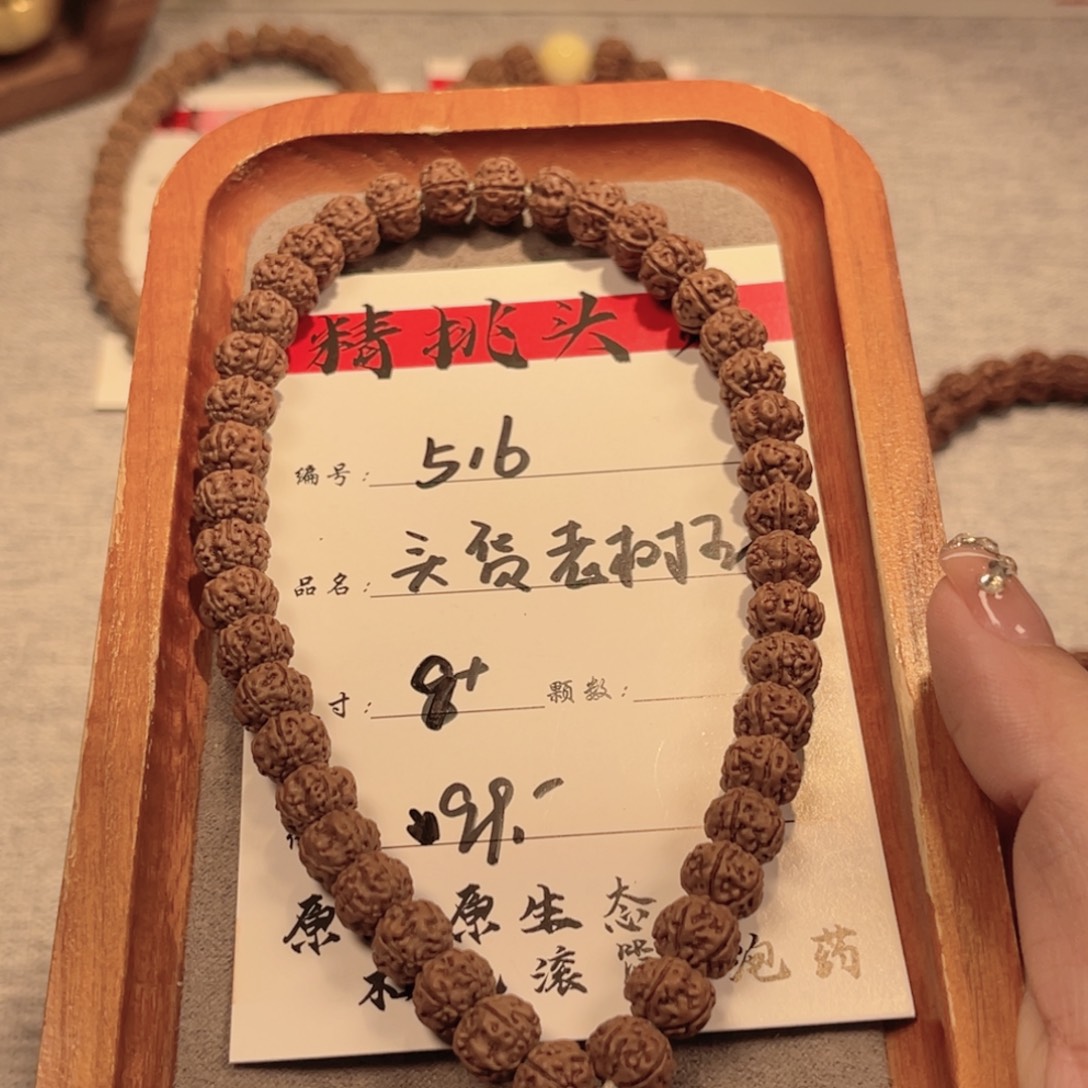 精挑头
编号: 516
品名: 头货老树
寸: 8+ 颗数:
原 原生态
滚 泡药